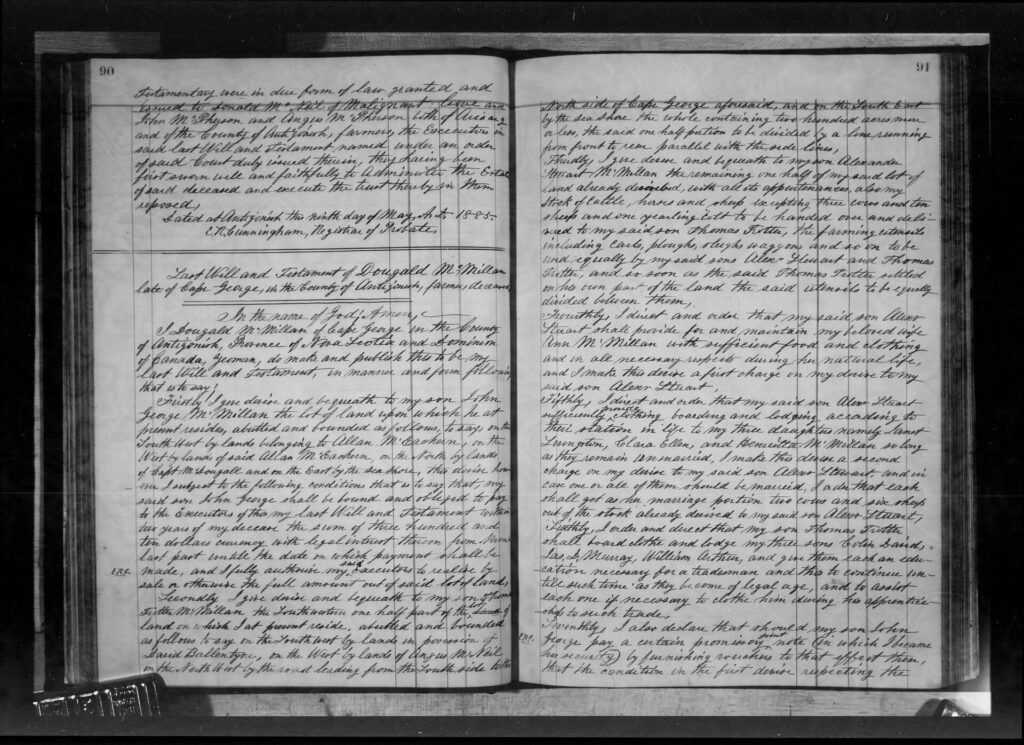 90
Testamentary were in due form of law granted and
issued to Donald McNeil of Malignant Cove and
John McPherson and Angus McPherson both of Arisaig
and of the County of Antigonish, farmers, the Executors in
said last Will and Testament named under an order
of said Court duly issued therein, they having been
first sworn well and faithfully to Administer the Estate
of said deceased and execute the trust thereby in them
reposed,
Dated at Antigonish this ninth day of May, A.D. 1885.
C.R. Cunningham, Registrar of Probate
Last Will and Testament of Dougald McMillan
late of Cape George, in the County of Antigonish, farmer, deceased
In the name of God, Amen,
I Dougald McMillan of Cape George in the County
of Antigonish, Province of Nova Scotia and Dominion
of Canada, Yeoman, do make and publish this to be my
last Will and Testament, in manner and form following
that is to say;
Firstly I give devise and bequeath to my son John
George McMillan the lot of land upon which he at
present resides, abutted and bounded as follows, to say, on the
South West by lands belonging to Allan McEachern, on the
West by lands of said Allan McEachern, on the North by lands
of Capt McDougall and on the East by the sea shore, this devise how-
ever I subject to the following conditions that is to say that, my
said son John George shall be bound and obliged to pay
to the Executors of this my last Will and Testament within
two years of my decease the sum of three hundred and
ten dollars currency with legal interest thereon from
last past until the date on which payment shall be
made, and I fully authorise my said executors to realise by
sale or otherwise the full amount out of said lot of land,
Secondly I give devise and bequeath to my son Thomas
Trotter McMillan the South western one half part of the
land on which I at present reside, abutted and bounded
as follows to say on the South west by lands in possession of
David Ballentyne, on the West by lands of Angus McNeil
on the North West by the road leading from the South side to the
91
North side of Cape George aforesaid, and on the South East
by the sea shore the whole containing two hundred acres more
or less, the said one half portion to be divided by a line running
from front to rear parallel with the side lines,
Thirdly, I give devise and bequeath to my son Alexander
Stuart McMillan the remaining one half of my said lot of
land already described, with all its appurtenances, also my
stock of cattle, horses and sheep excepting three cows and ten
sheep and one yearling colt to be handed over and deli-
vered to my said son Thomas Trotter, the farming utensils
including carts, ploughs, sleighs waggons and so on to be
used equally by my said sons Alexr Stewart and Thomas
Trotter, and so soon as the said Thomas Trotter settled
on his own part of the land the said utensils to be equally
divided between them,
Fourthly, I direct and order that my said son Alexr
Stuart shall provide for and maintain my beloved wife
Ann McMillan with sufficient food and clothing
and in all necessary respects during her natural life,
and I make this devise a first charge on my devise to my
said son Alexr Stuart,
Fifthly, I direct and order that my said son Alexr Stuart
sufficiently provide clothing boarding and lodging according to
their station in life to my three daughters namely Janet
Livingston, Clara Ellen, and Henrietta McMillan so long
as they remain unmarried, I make this devise a second
charge on my devise to my said son Alexr Stewart, and in
case one or all of them should be married, I order that each
shall get as her marriage portion two cows and six sheep
out of the stock already devised to my said son Alexr Stuart,
Sixthly, I order and direct that my son Thomas Trotter
shall board clothe and lodge my three sons David,
Murray, William Arthur, and give them each an edu-
cation necessary for a tradesman and this to continue un-
till such time as they become of legal age, and to assist
each one if necessary to clothe him during his apprentice-
ship to such trade,
Seventhly, I also declare that should my son John
George pay a certain promissory note (in which I became
his security) by furnishing vouchers to that effect then,
that the condition in the first devise respecting the